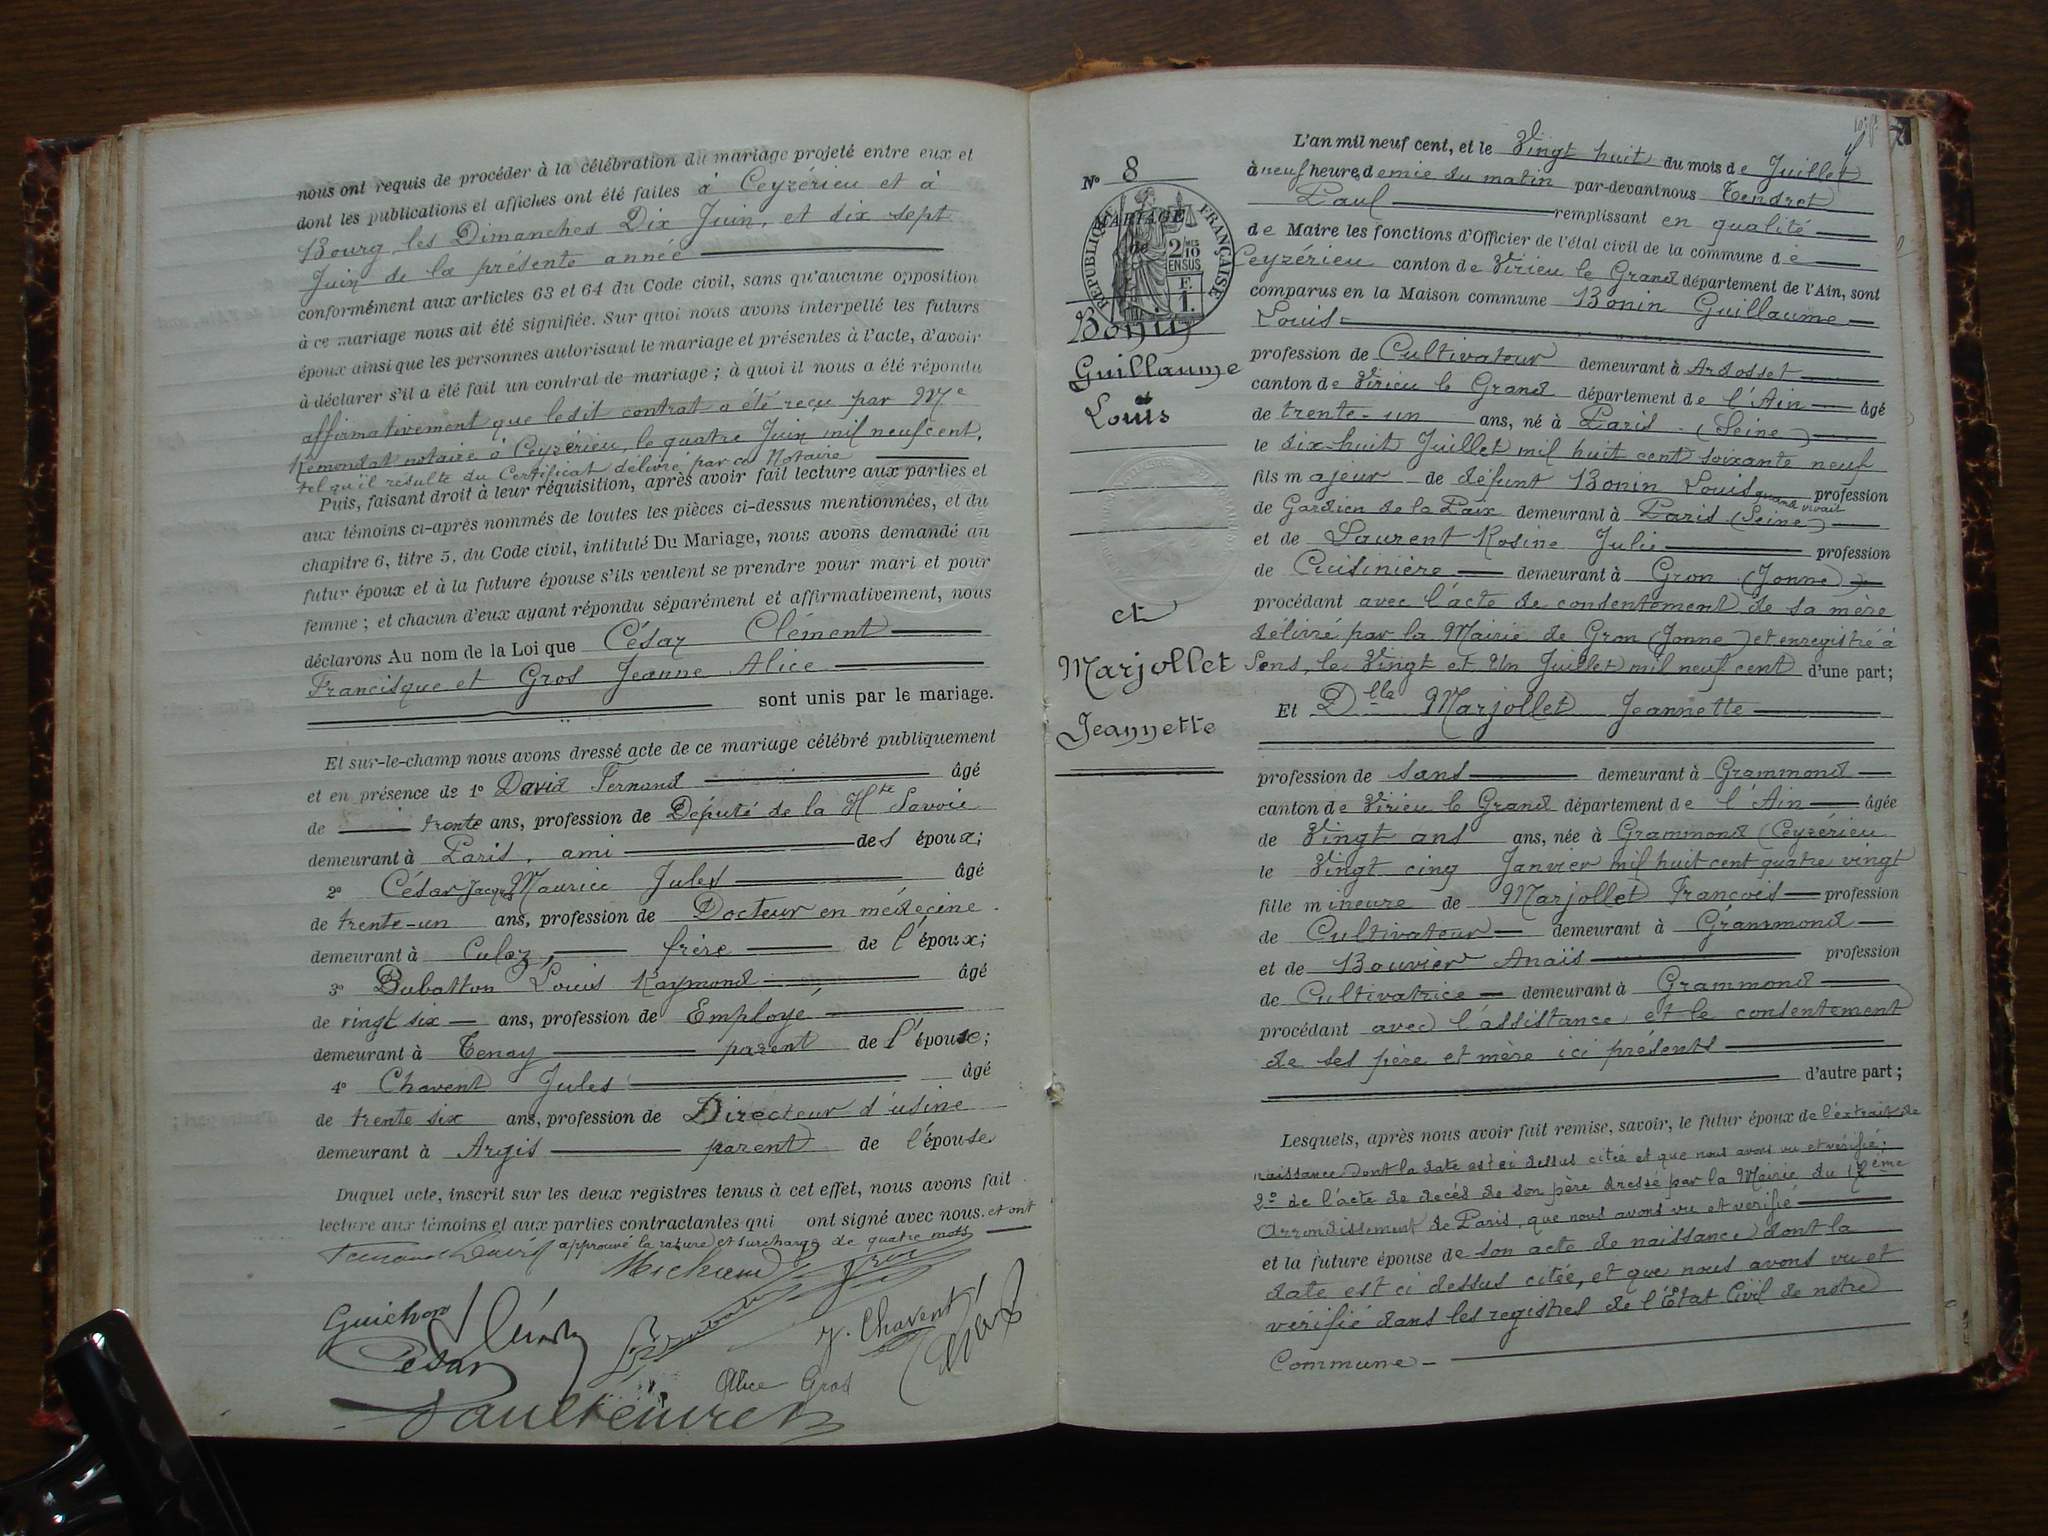 nous ont requis de procéder à la célébration du mariage projeté entre eux et
dont les publications et affiches ont été faites à Ceyzérieu et à
Bourg, les Dimanches Dix Juin, et dix sept
Juin de la présente année
conformément aux articles 63 et 64 du Code civil, sans qu'aucune opposition
à ce mariage nous ait été signifiée. Sur quoi nous avons interpellé les futurs
époux ainsi que les personnes autorisant le mariage et présentes à l'acte, d'avoir
à déclarer s'il a été fait un contrat de mariage; à quoi il nous a été répondu
affirmativement que ledit contrat a été reçu par Me
notaire à Ceyzérieu, le quatre Juin mil neuf cent,
tel qu'il resulte du Certificat délivré par ce Notaire
Puis, faisant droit à leur réquisition, après avoir fait lecture aux parties et
aux témoins ci-après nommés de toutes les pièces ci-dessus mentionnées, et du
chapitre 6, titre 5, du Code civil, intitulé Du Mariage, nous avons demandé au
futur époux et à la future épouse s'ils veulent se prendre pour mari et pour
femme; et chacun d'eux ayant répondu séparément et affirmativement, nous
déclarons Au nom de la Loi que César Clément
Francisque et Gros Jeanne Alice
sont unis par le mariage.
Et sur-le-champ nous avons dressé acte de ce mariage célébré publiquement
et en présence de 1° David Fernand âgé
de trente ans, profession de Député de la Hte Savoie
demeurant à Paris, ami des époux;
2° César Jacques Maurice Jules âgé
de trente-un ans, profession de Docteur en médecine
demeurant à Culoz, frère de l'époux;
3° Dubatton Louis Raymond âgé
de vingt six ans, profession de Employé,
demeurant à Tenay parent de l'épouse;
4° Chavent Jules âgé
de trente six ans, profession de Directeur d'usine
demeurant à Argis parent de l'épouse
Duquel acte, inscrit sur les deux registres tenus à cet effet, nous avons fait
lecture aux témoins et aux parties contractantes qui ont signé avec nous. et ont
approuvé la rature et surcharge de quatre mots
Fernand David
Michaud
Gros
Guichon
J. Chavent
César
Alice Gros
Paul Tendret
N° 8
REPUBLIQUE FRANÇAISE
MARIAGE
de
2/10 EN SUS
F. 1
Bonin
Guillaume
Louis
et
Marjollet
Jeannette
L'an mil neuf cent, et le Vingt huit du mois de Juillet
à neuf heures demie du matin par-devant nous Tendret
Paul remplissant en qualité
de Maire les fonctions d'Officier de l'état civil de la commune de
Ceyzérieu canton de Virieu le Grand département de l'Ain, sont
comparus en la Maison commune Bonin Guillaume
Louis
profession de Cultivateur demeurant à Ardosset
canton de Virieu le Grand département de l'Ain âgé
de trente-un ans, né à Paris (Seine)
le dix-huit Juillet mil huit cent soixante neuf
fils majeur de défunt Bonin Louis quand vivait profession
de Gardien de la Paix demeurant à Paris (Seine)
et de Laurent Rosine Julie profession
de Cuisinière demeurant à Gron (Yonne)
procédant avec l'acte de consentement de sa mère
délivré par la Mairie de Gron (Yonne) et enregistré à
Sens, le Vingt et Un Juillet mil neuf cent d'une part;
Et Dlle Marjollet Jeannette
profession de sans demeurant à Grammond
canton de Virieu le Grand département de l'Ain âgée
de Vingt ans ans, née à Grammond (Ceyzérieu
le Vingt cinq Janvier mil huit cent quatre vingt
fille mineure de Marjollet François profession
de Cultivateur demeurant à Grammond
et de Bouvier Anaïs profession
de Cultivatrice demeurant à Grammond
procédant avec l'assistance et le consentement
de ses père et mère ici présents
d'autre part;
Lesquels, après nous avoir fait remise, savoir, le futur époux de l'extrait de
naissance dont la date est ci dessus citée et que nous avons vu et vérifié;
2° de l'acte de decés de son père dressé par la Mairie du
Arrondissement de Paris, que nous avons vu et verifié
et la future épouse de son acte de naissance dont la
date est ci dessus citée, et que nous avons vu et
vérifié dans les registres de l'État Civil de notre
Commune